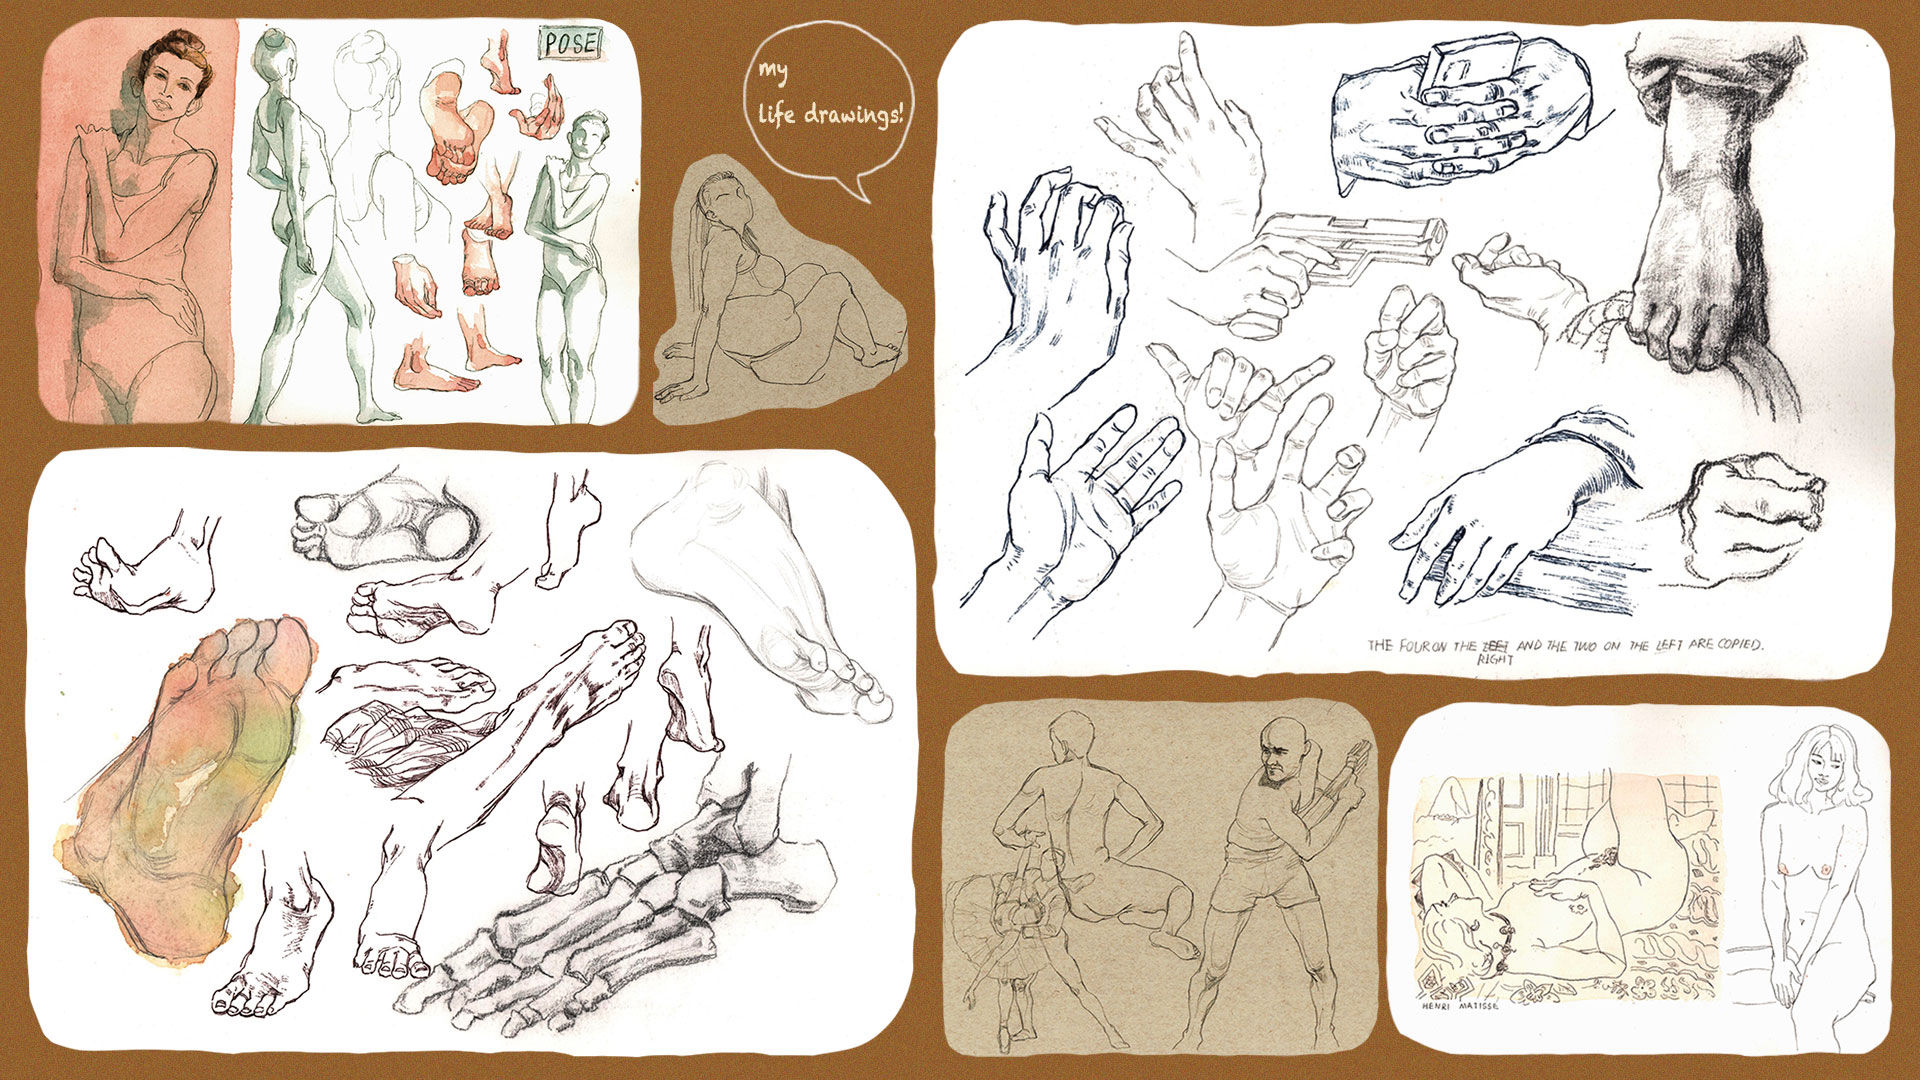 POSE
my
life drawings!
THE FOUR ON THE LEFT AND THE TWO ON THE LEFT ARE COPIED.
RIGHT
HENRI MATISSE